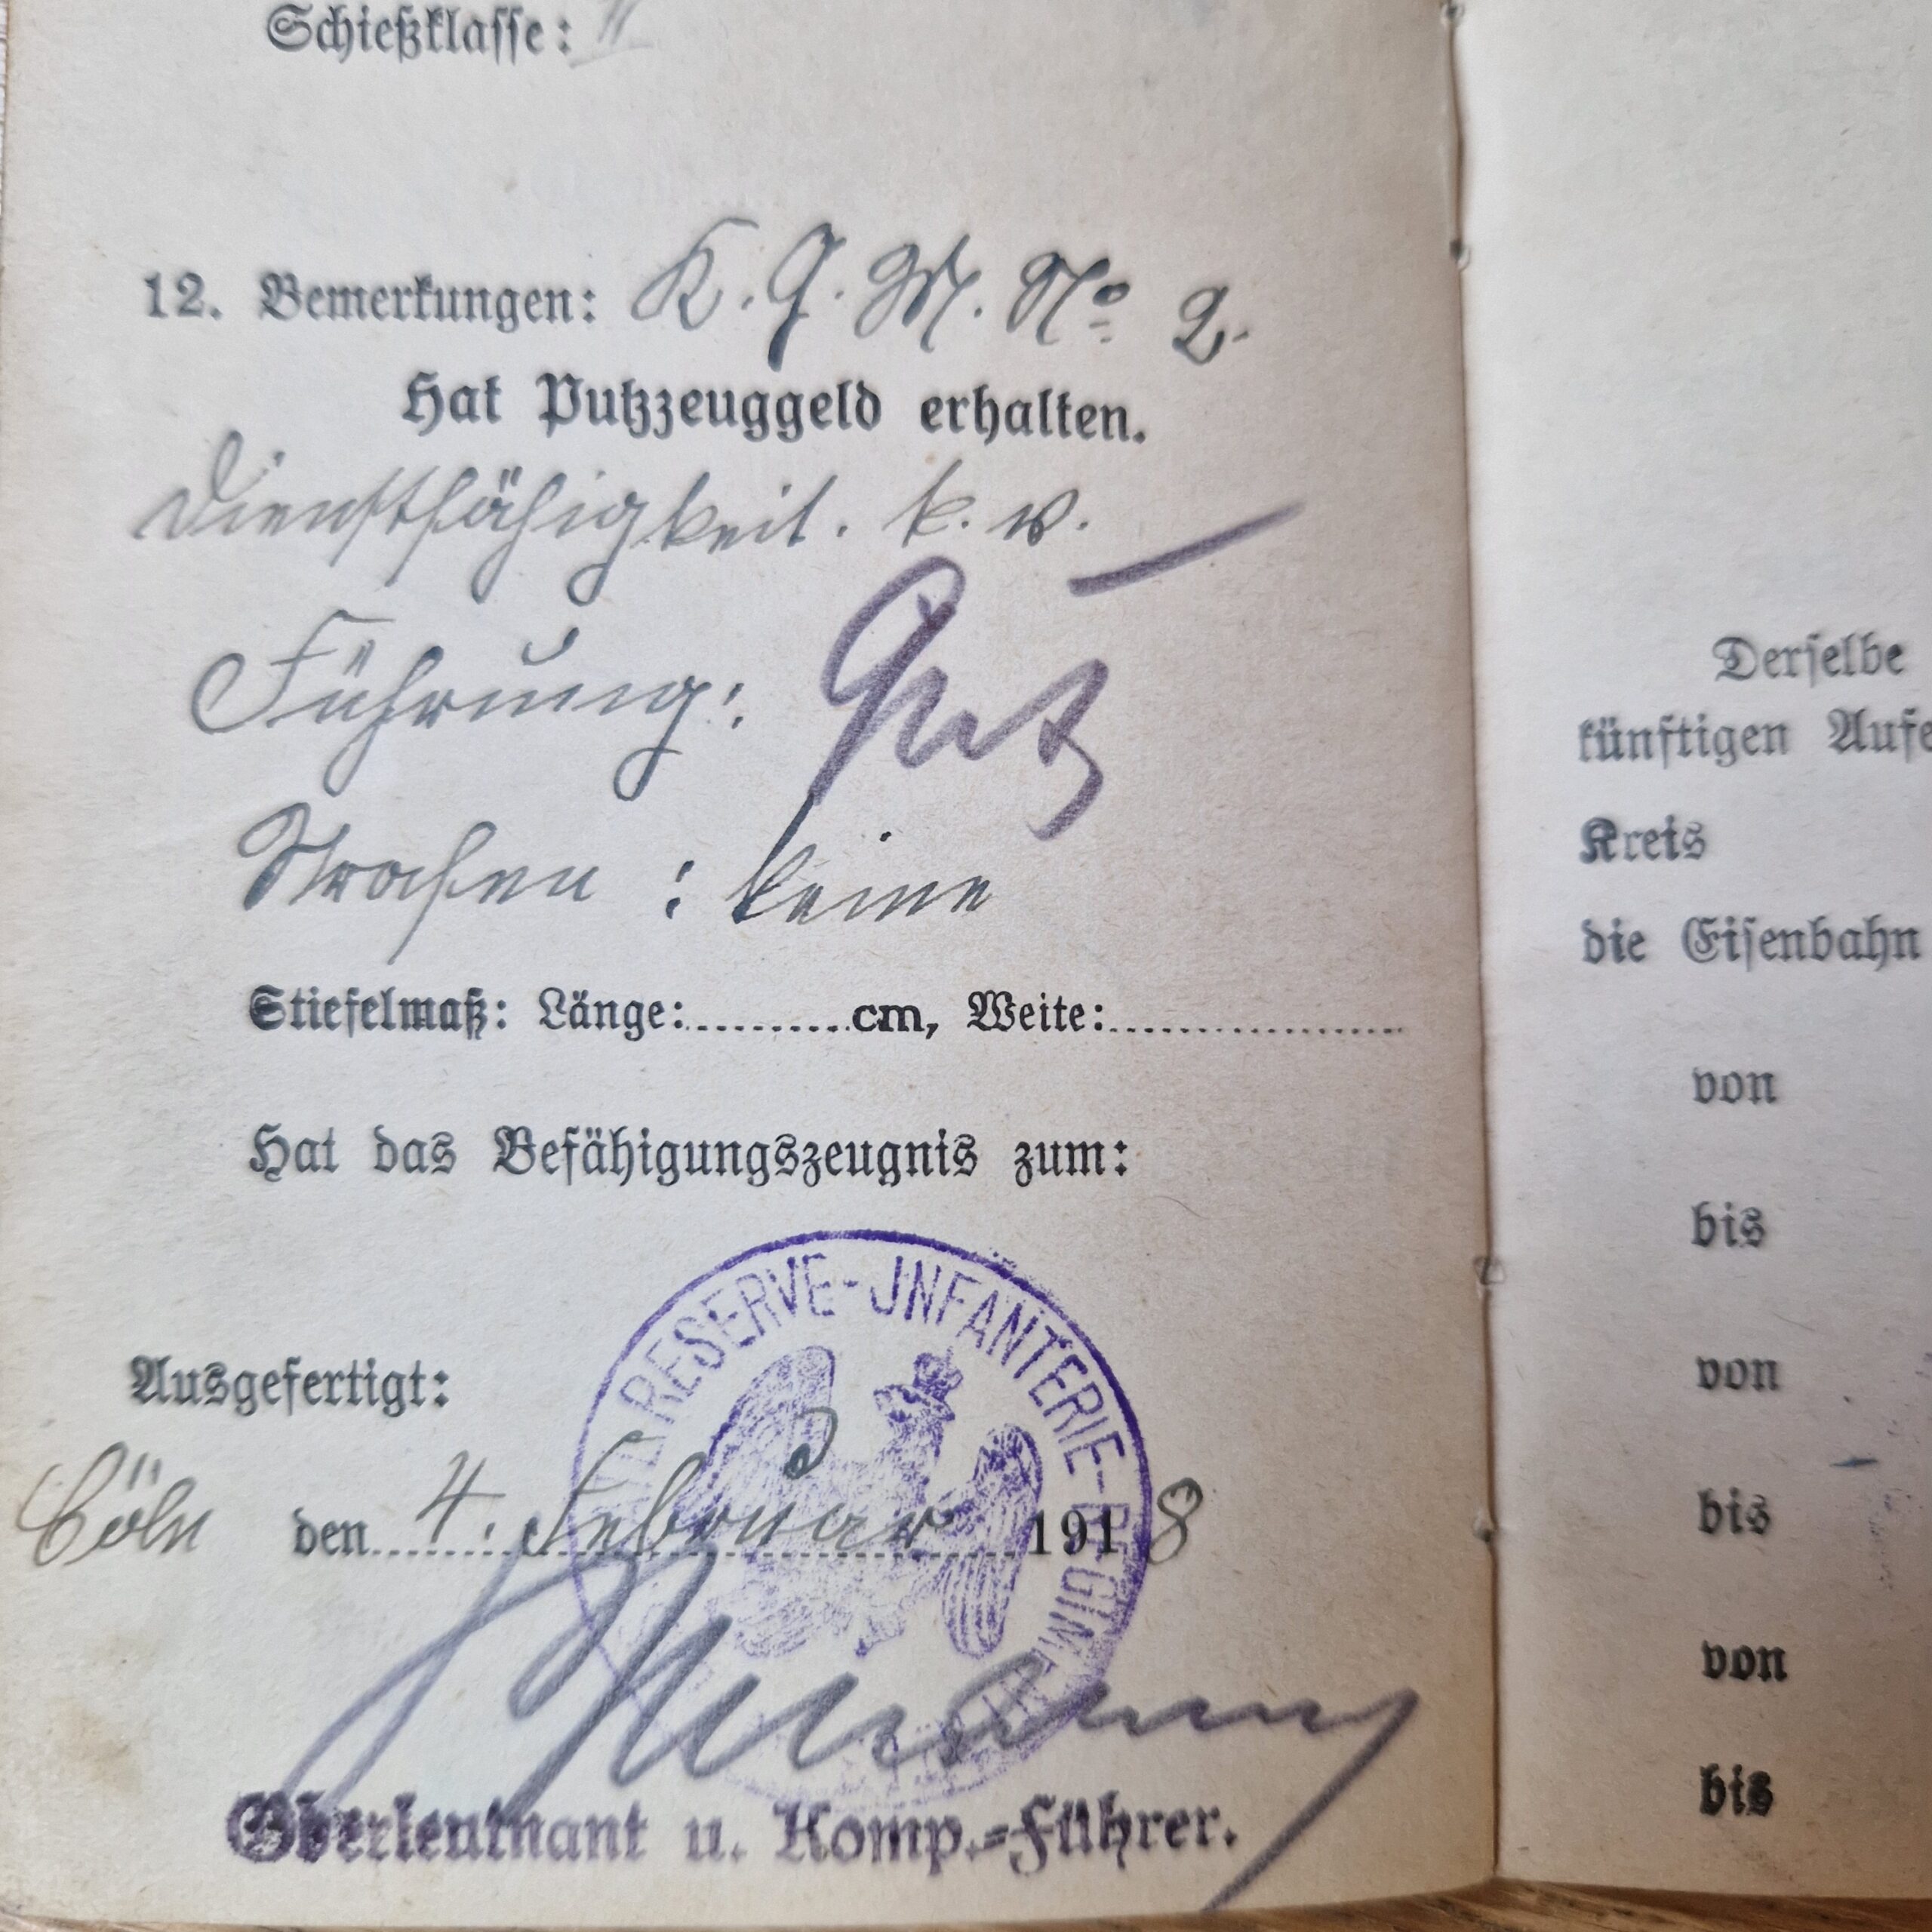 Schießklasse: II
12. Bemerkungen: K. G. M. No 2.
Hat Putzzeuggeld erhalten.
Dienstfähigkeit. k. v.
Führung: Gut
Strafen : keine
Stiefelmaß: Länge:.........cm, Weite:..................
Hat das Befähigungszeugnis zum:
RESERVE-JNFANTERIE-REGIM
Ausgefertigt:
Cöln den 4. Februar 1918
Oberleutnant u. Komp.-Führer.
Derselbe
künftigen Aufe
Kreis
die Eisenbahn
von
bis
von
bis
von
bis